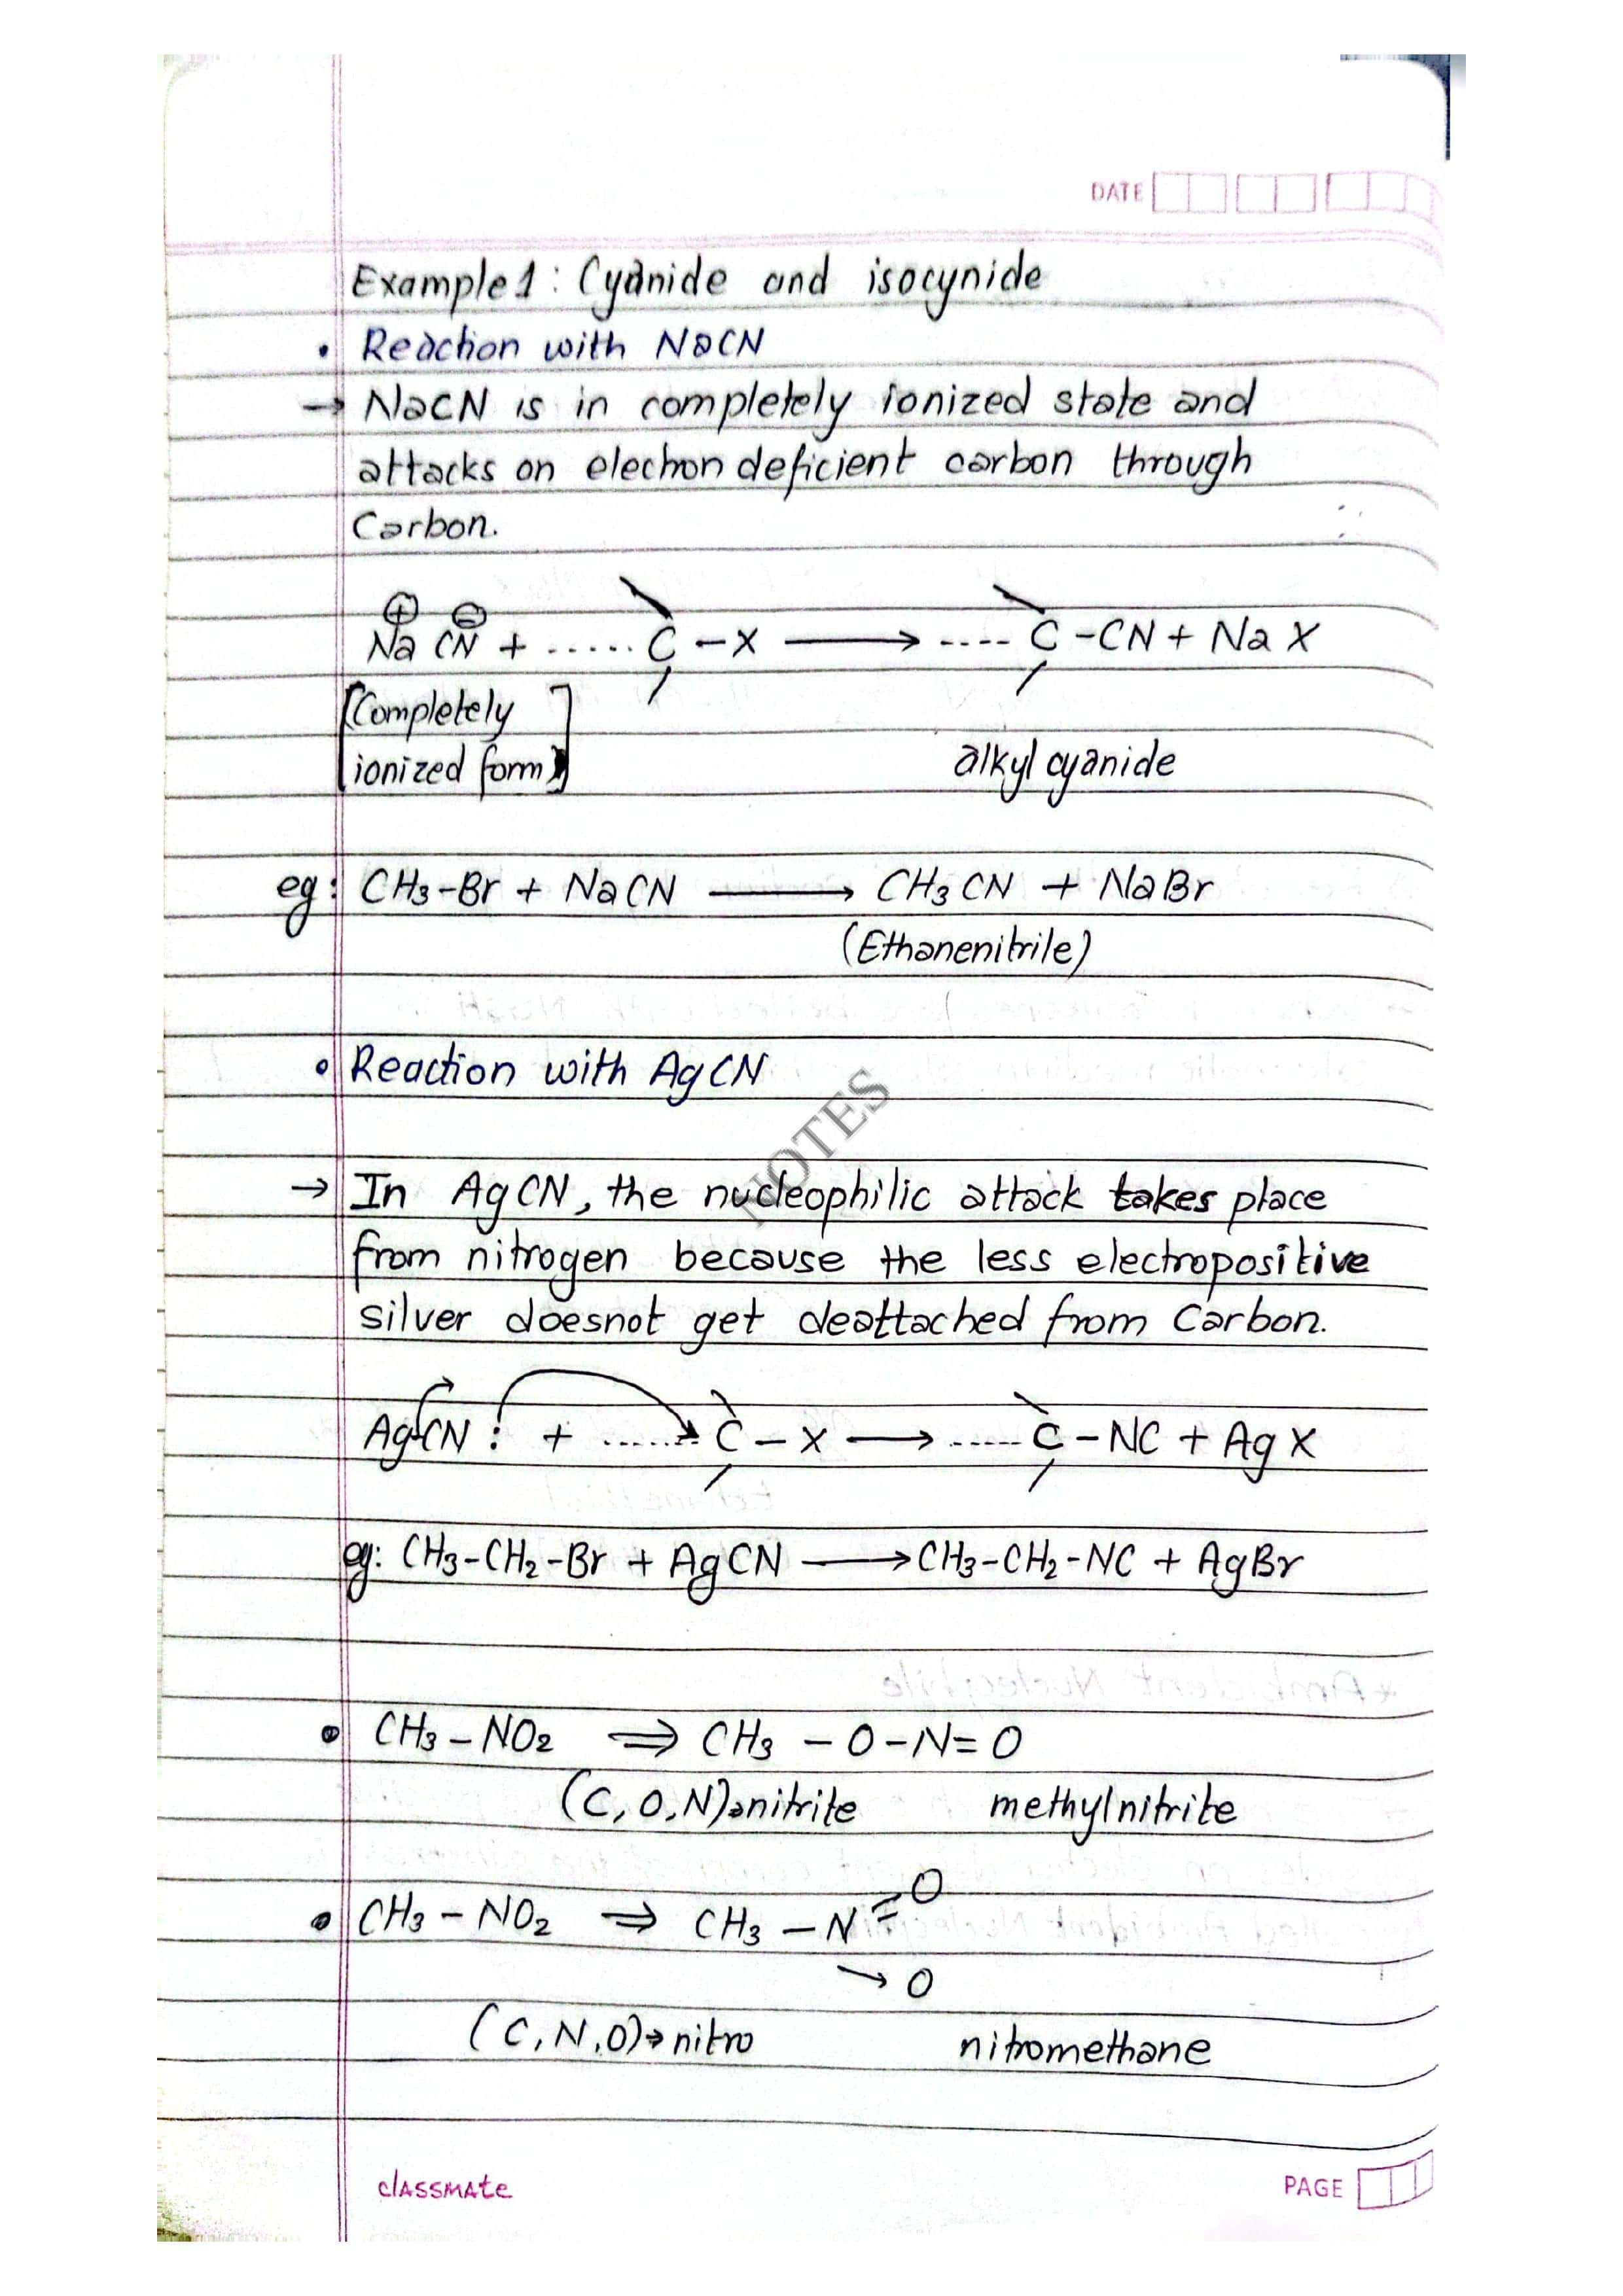 DATE
Example 1 : Cyanide and isocynide
• Reaction with NaCN
→ NaCN is in completely ionized state and
attacks on electron deficient carbon through
Carbon.
⊕ ⊖
Na CN + ...... C – X ⟶ ---- C – CN + Na X
[Completely
ionized form]
alkyl cyanide
eg: CH3–Br + NaCN ⟶ CH3 CN + NaBr
(Ethanenitrile)
• Reaction with AgCN
NOTES
→ In AgCN, the nucleophilic attack takes place
from nitrogen because the less electropositive
silver doesnot get deattached from Carbon.
AgCN : + ....... C – X ⟶ ...... C – NC + Ag X
eg: CH3–CH2–Br + AgCN ⟶ CH3–CH2–NC + AgBr
• CH3 – NO2 ⇒ CH3 – O – N = O
(C, O, N)→nitrite methylnitrite
• CH3 – NO2 ⇒ CH3 – N = O
→ O
(C, N, O)→nitro nitromethane
classmate
PAGE